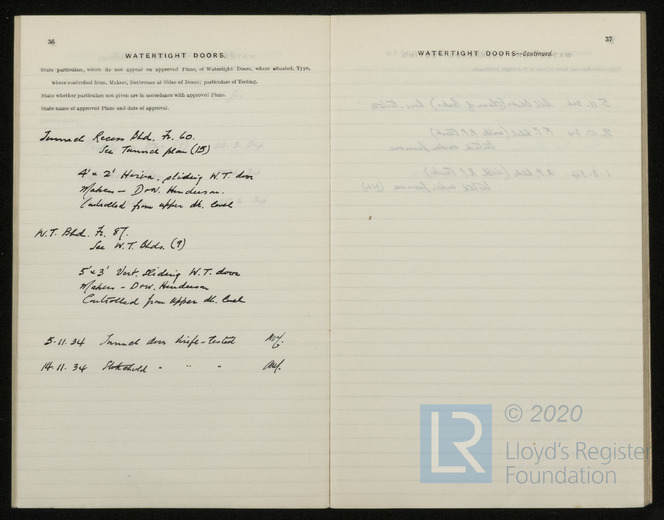 36
WATERTIGHT DOORS.
State particulars, which do not appear on approved Plans, of Watertight Doors, where situated, Type,
where controlled from, Makers, Sternness at Skins of Doors; particulars of Testing.
State whether particulars not given are in accordance with approved Plans.
State name of approved Plans and date of approval.
Tunnel Recess Bhd. Fr. 60.
See Tunnel plan (15)
4' x 2' Horiz. sliding W.T. door
Makers - Dow. Henderson.
Controlled from upper dk. level
W.T. Bhd. Fr. 87.
See W.T. Bhds. (9)
5' x 3' Vert. sliding W.T. door
Makers - Dow. Henderson
Controlled from upper dk. level
5.11.34 Tunnel door hose-tested
14.11.34 Stokehold " " "
37
WATERTIGHT DOORS—Continued.
LR
© 2020
Lloyd's Register
Foundation